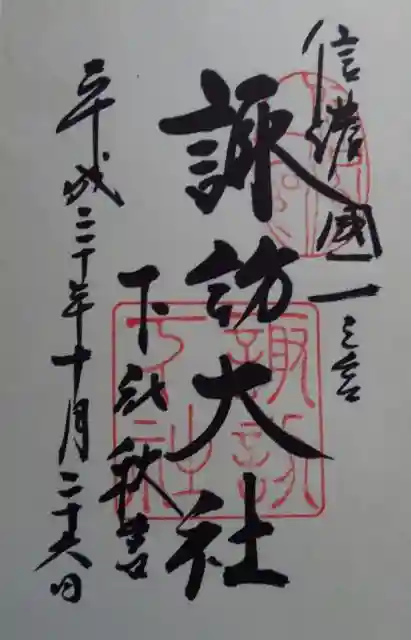 信濃國一之宮
諏訪大社
下社秋宮
平成二十年十月二十六日
諏訪
下社